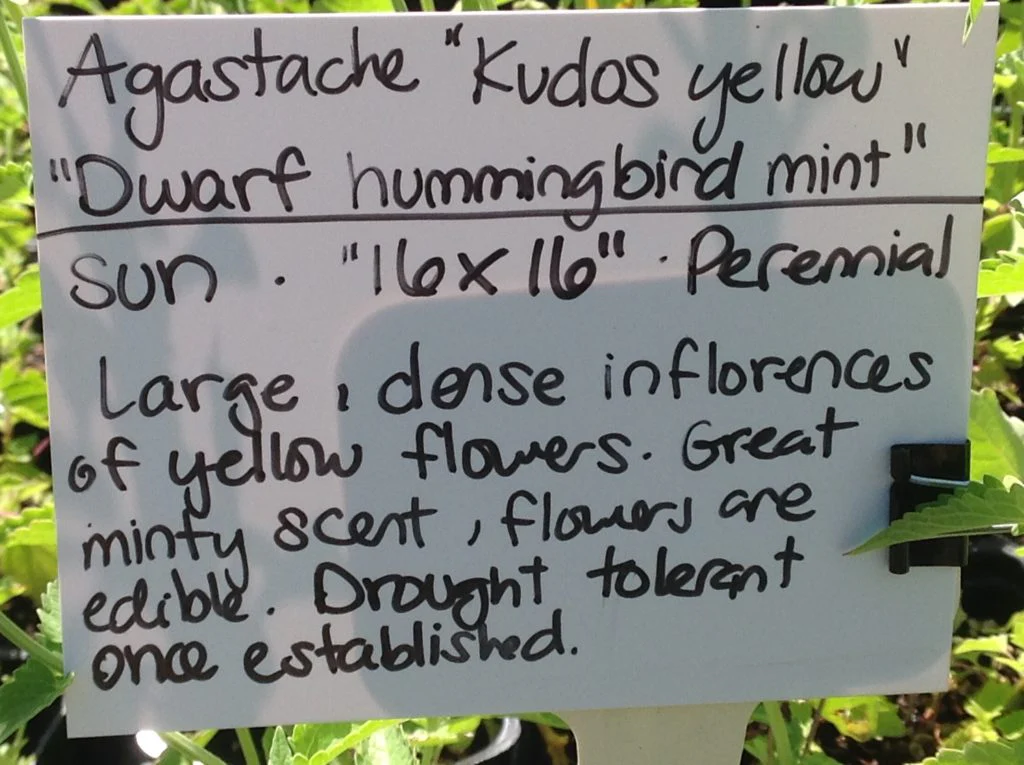 Agastache "Kudos yellow"
"Dwarf hummingbird mint"
sun · "16x16" · Perennial
Large, dense inflorences
of yellow flowers. Great
minty scent, flowers are
edible. Drought tolerant
once established.